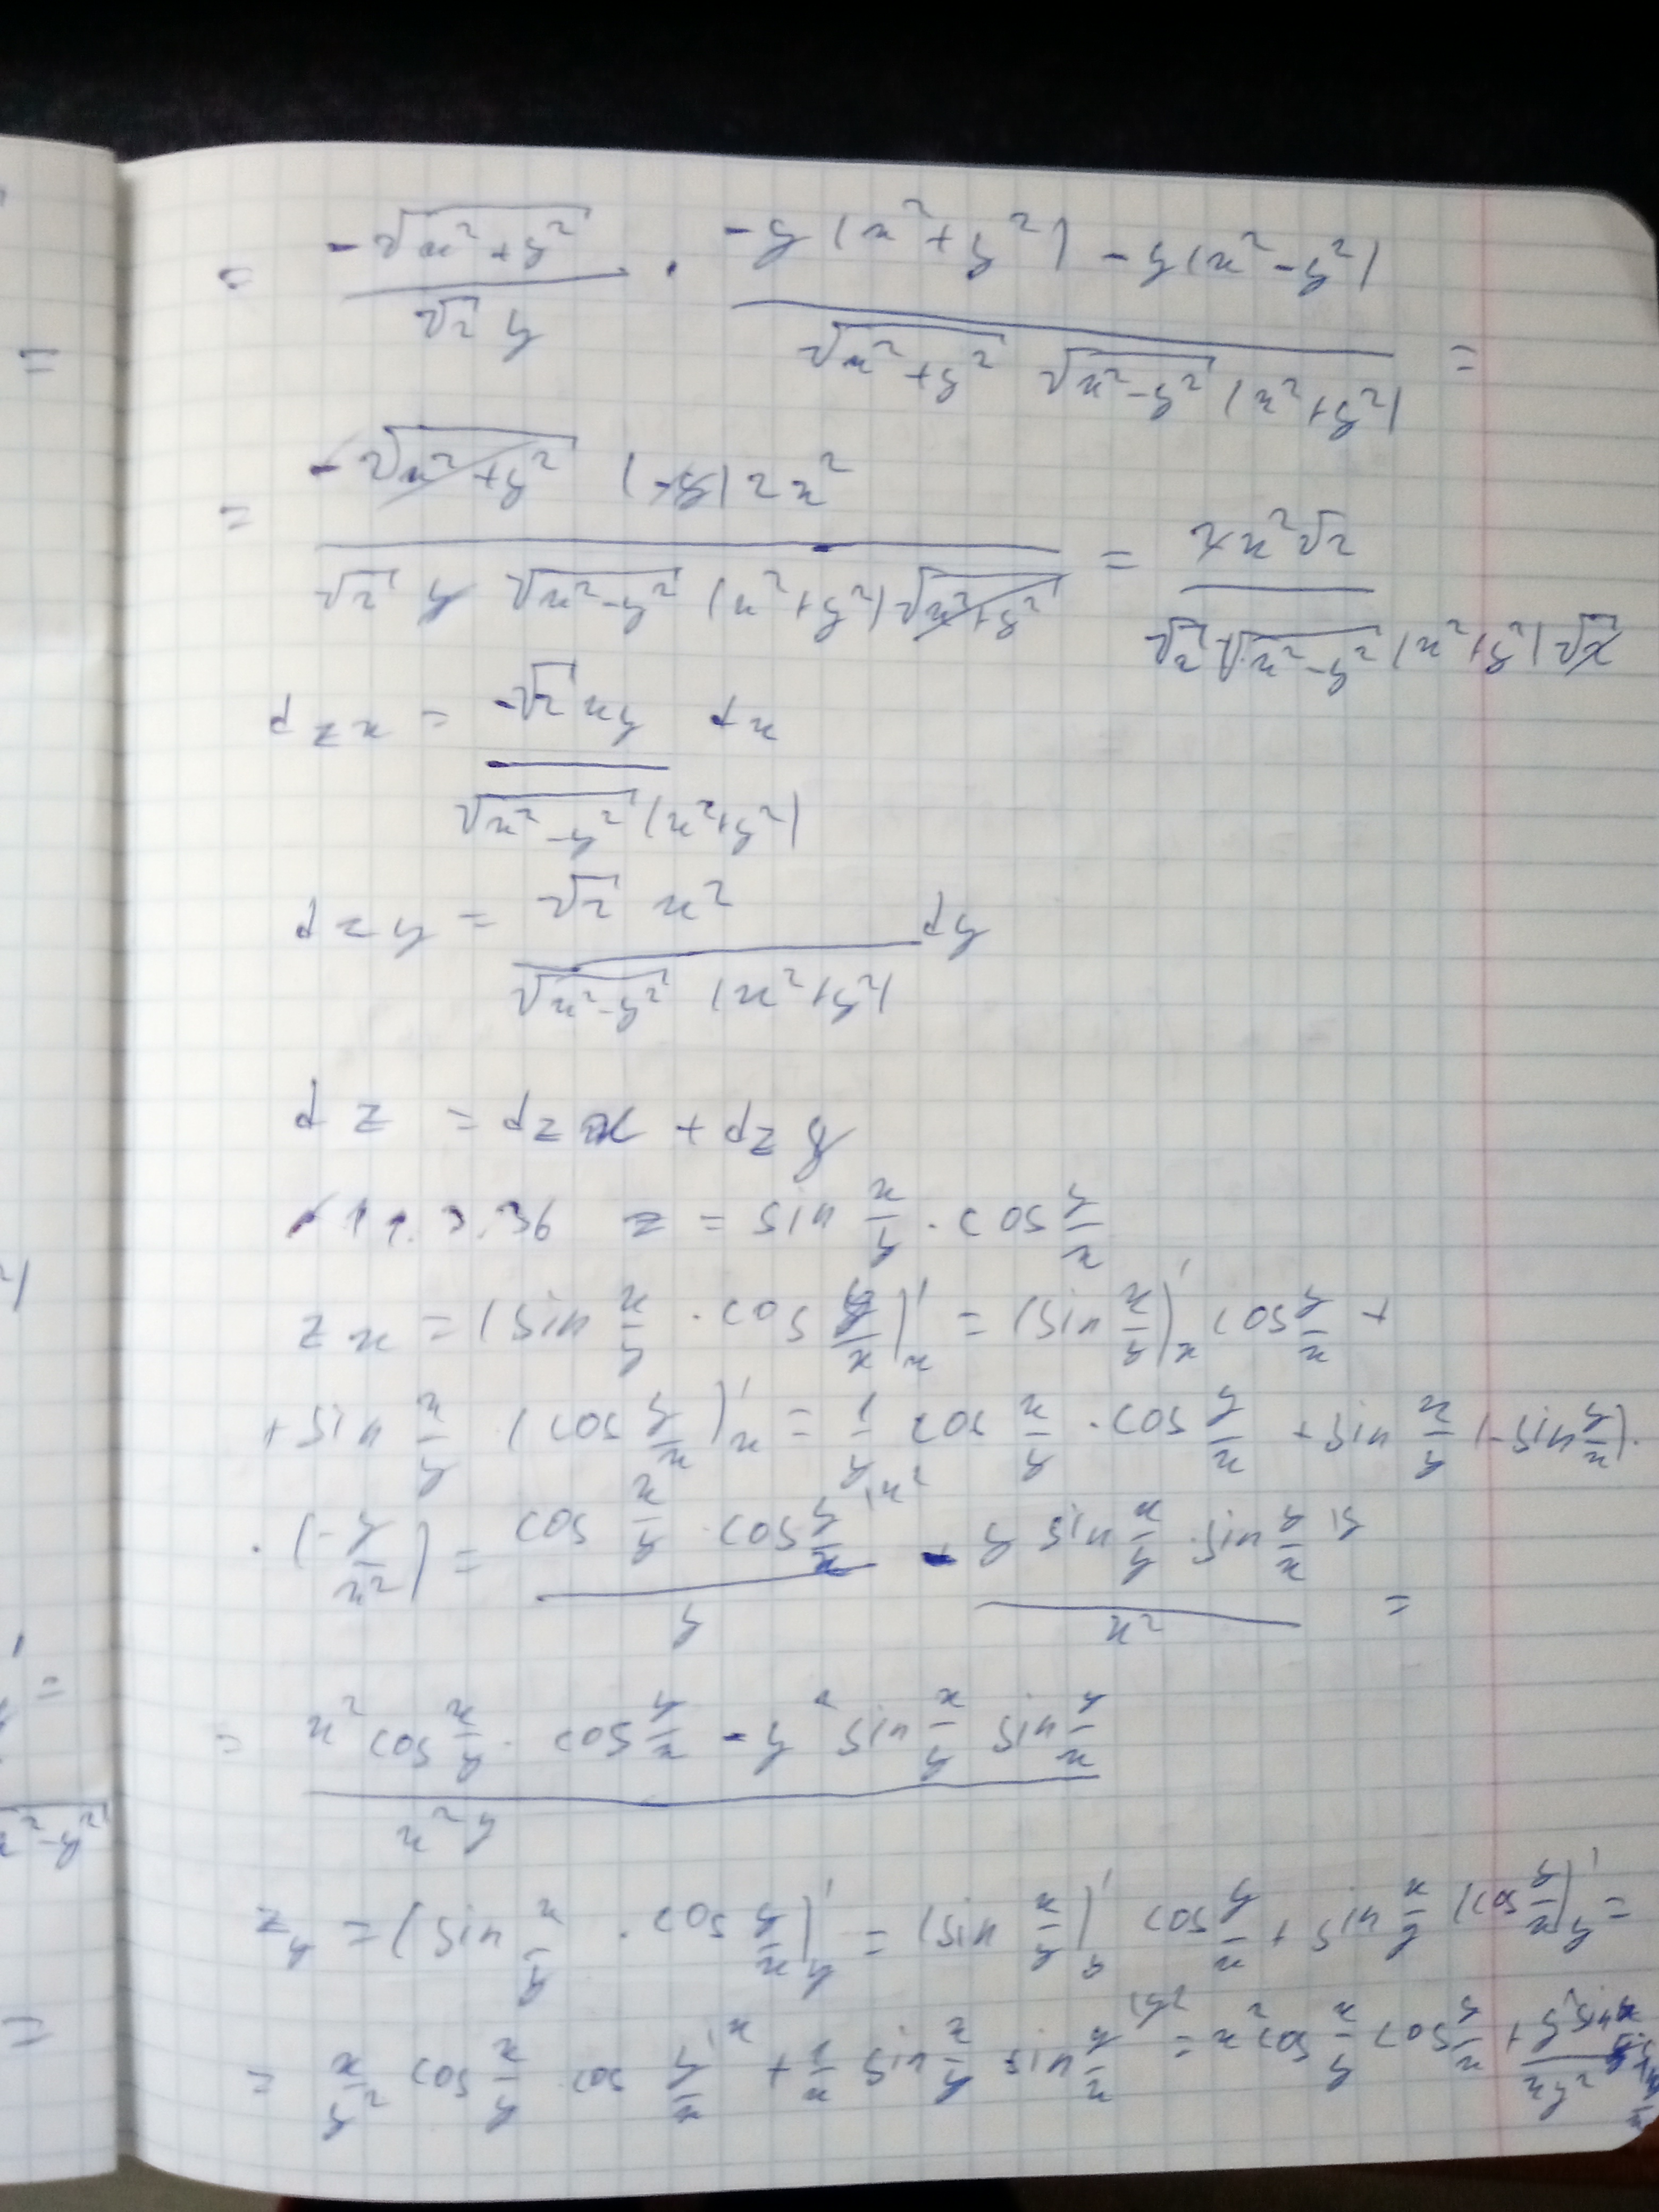 = -√(x²+y²) / (√2 y) · (-y(x²+y²) - y(x²-y²)) / (√(x²+y²) √(x²-y²) (x²+y²)) =
= -√(x²+y²) (-y) 2x² / (√2 y √(x²-y²) (x²+y²) √(x²+y²)) = 2x²√2 / (√2 √(x²-y²) (x²+y²) √2)
dzx = -√2 xy / (√(x²-y²) (x²+y²)) dx
dzy = √2 x² / (√(x²-y²) (x²+y²)) dy
dz = dzx + dzy
11.3.36 z = sin x/y · cos y/x
zx = (sin x/y · cos y/x)'x = (sin x/y)'x cos y/x +
+ sin x/y · (cos y/x)'x = 1/y cos x/y · cos y/x + sin x/y (-sin y/x) ·
· (-y/x²) = cos x/y · cos y/x |x² / y + y sin x/y · sin y/x |y / x² =
= (x² cos x/y · cos y/x - y² sin x/y sin y/x) / (x²y)
zy = (sin x/y · cos y/x)'y = (sin x/y)'y cos y/x + sin x/y (cos y/x)'y =
= x/y² cos x/y cos y/x |x + 1/x sin x/y sin y/x |y² = x² cos x/y cos y/x + y² sin x/y / xy²